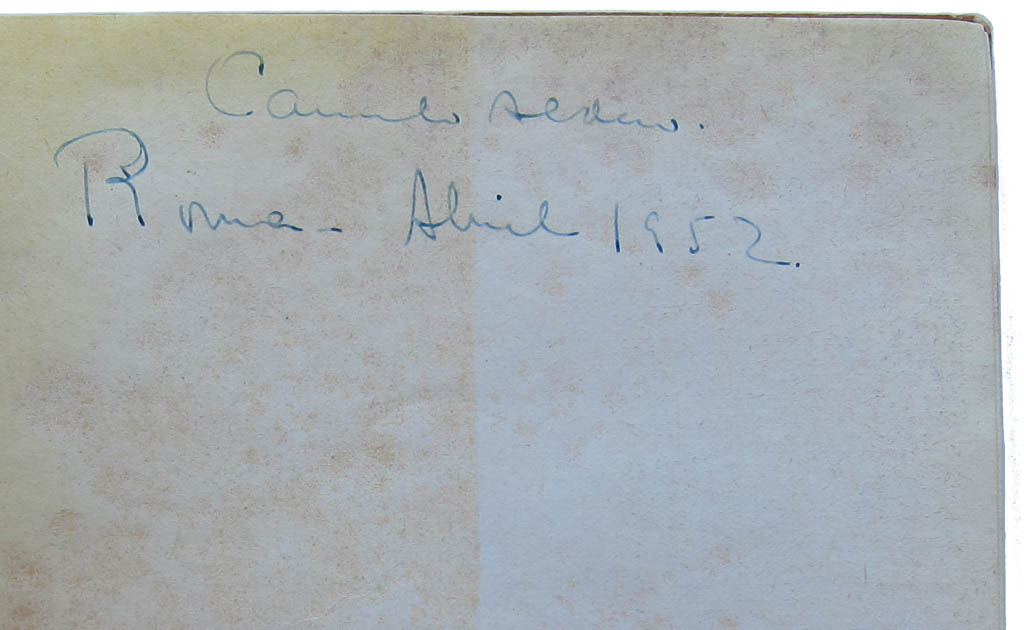 Camilo
Roma - Abril 1952.